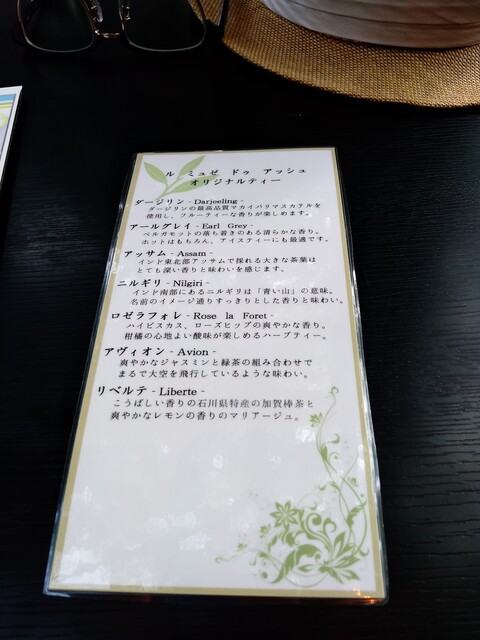 ル ミュゼ ドゥ アッシュ
オリジナルティー
ダージリン - Darjeeling -
ダージリンの最高品質マカイバリマスカテルを
使用し、フルーティーな香りが楽しめます。
アールグレイ - Earl Grey -
ベルガモットの落ち着きのある清らかな香り。
ホットはもちろん、アイスティーにも最適です。
アッサム - Assam -
インド東北部アッサムで採れる大きな茶葉は
とても深い香りと味わいを感じます。
ニルギリ - Nilgiri -
インド南部にあるニルギリは「青い山」の意味。
名前のイメージ通りすっきりとした香りと味わい。
ロゼラフォレ - Rose la Foret -
ハイビスカス、ローズヒップの爽やかな香り。
柑橘の心地よい酸味が楽しめるハーブティー。
アヴィオン - Avion -
爽やかなジャスミンと緑茶の組み合わせで
まるで大空を飛行しているような味わい。
リベルテ - Liberte -
こうばしい香りの石川県特産の加賀棒茶と
爽やかなレモンの香りのマリアージュ。